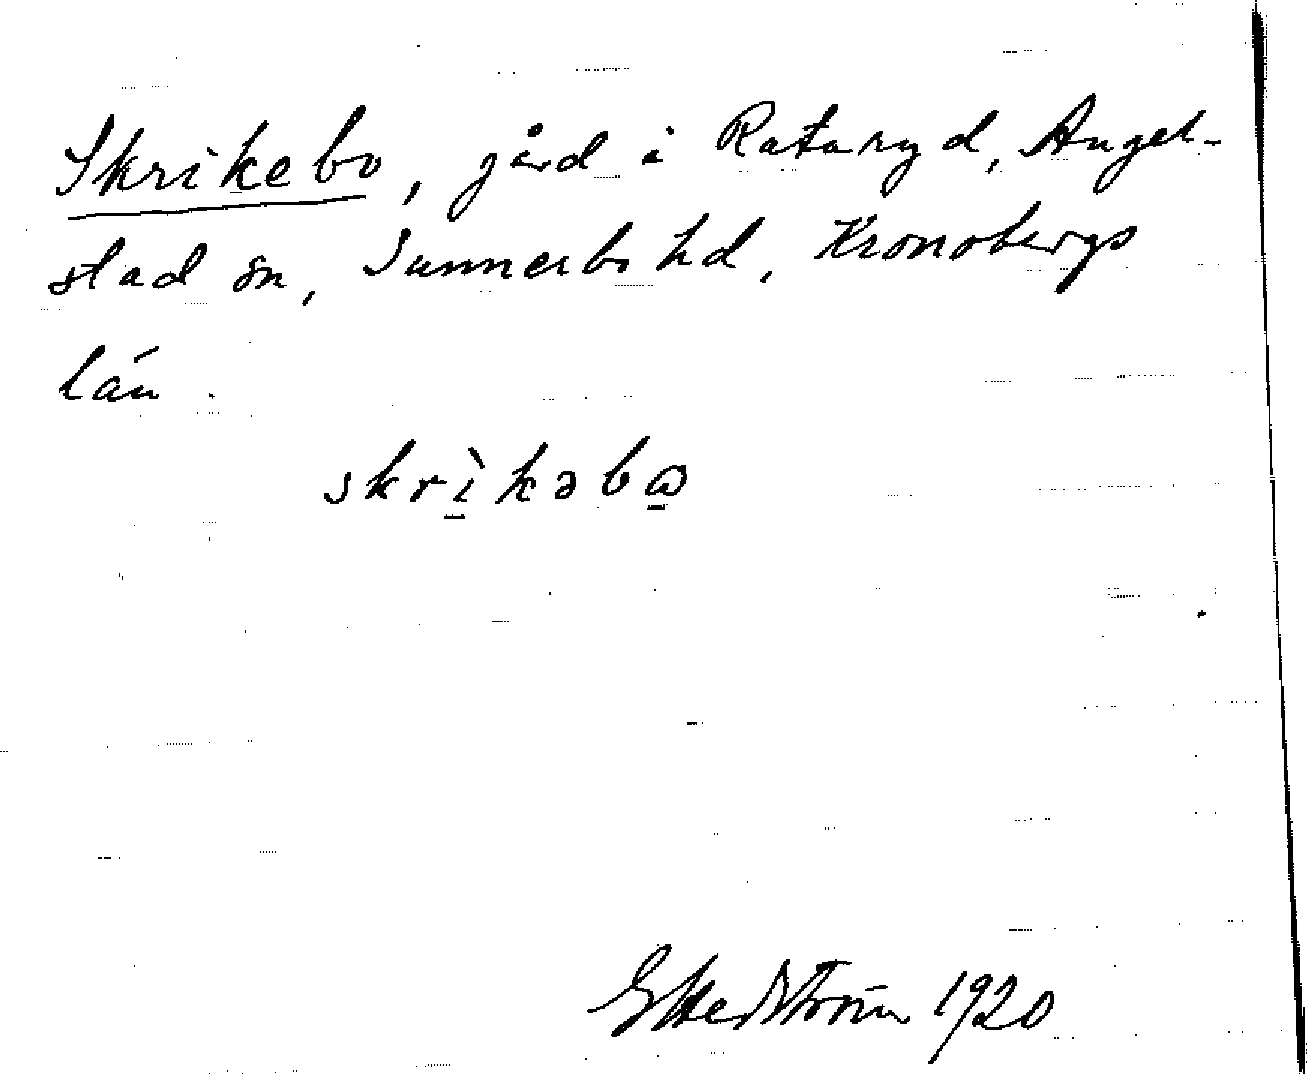 Skrikebo, gård i Rataryd, Angel-
stad sn, Sunnerbo hd, Kronobergs
län.
skrìkəbω
G Hedström 1920